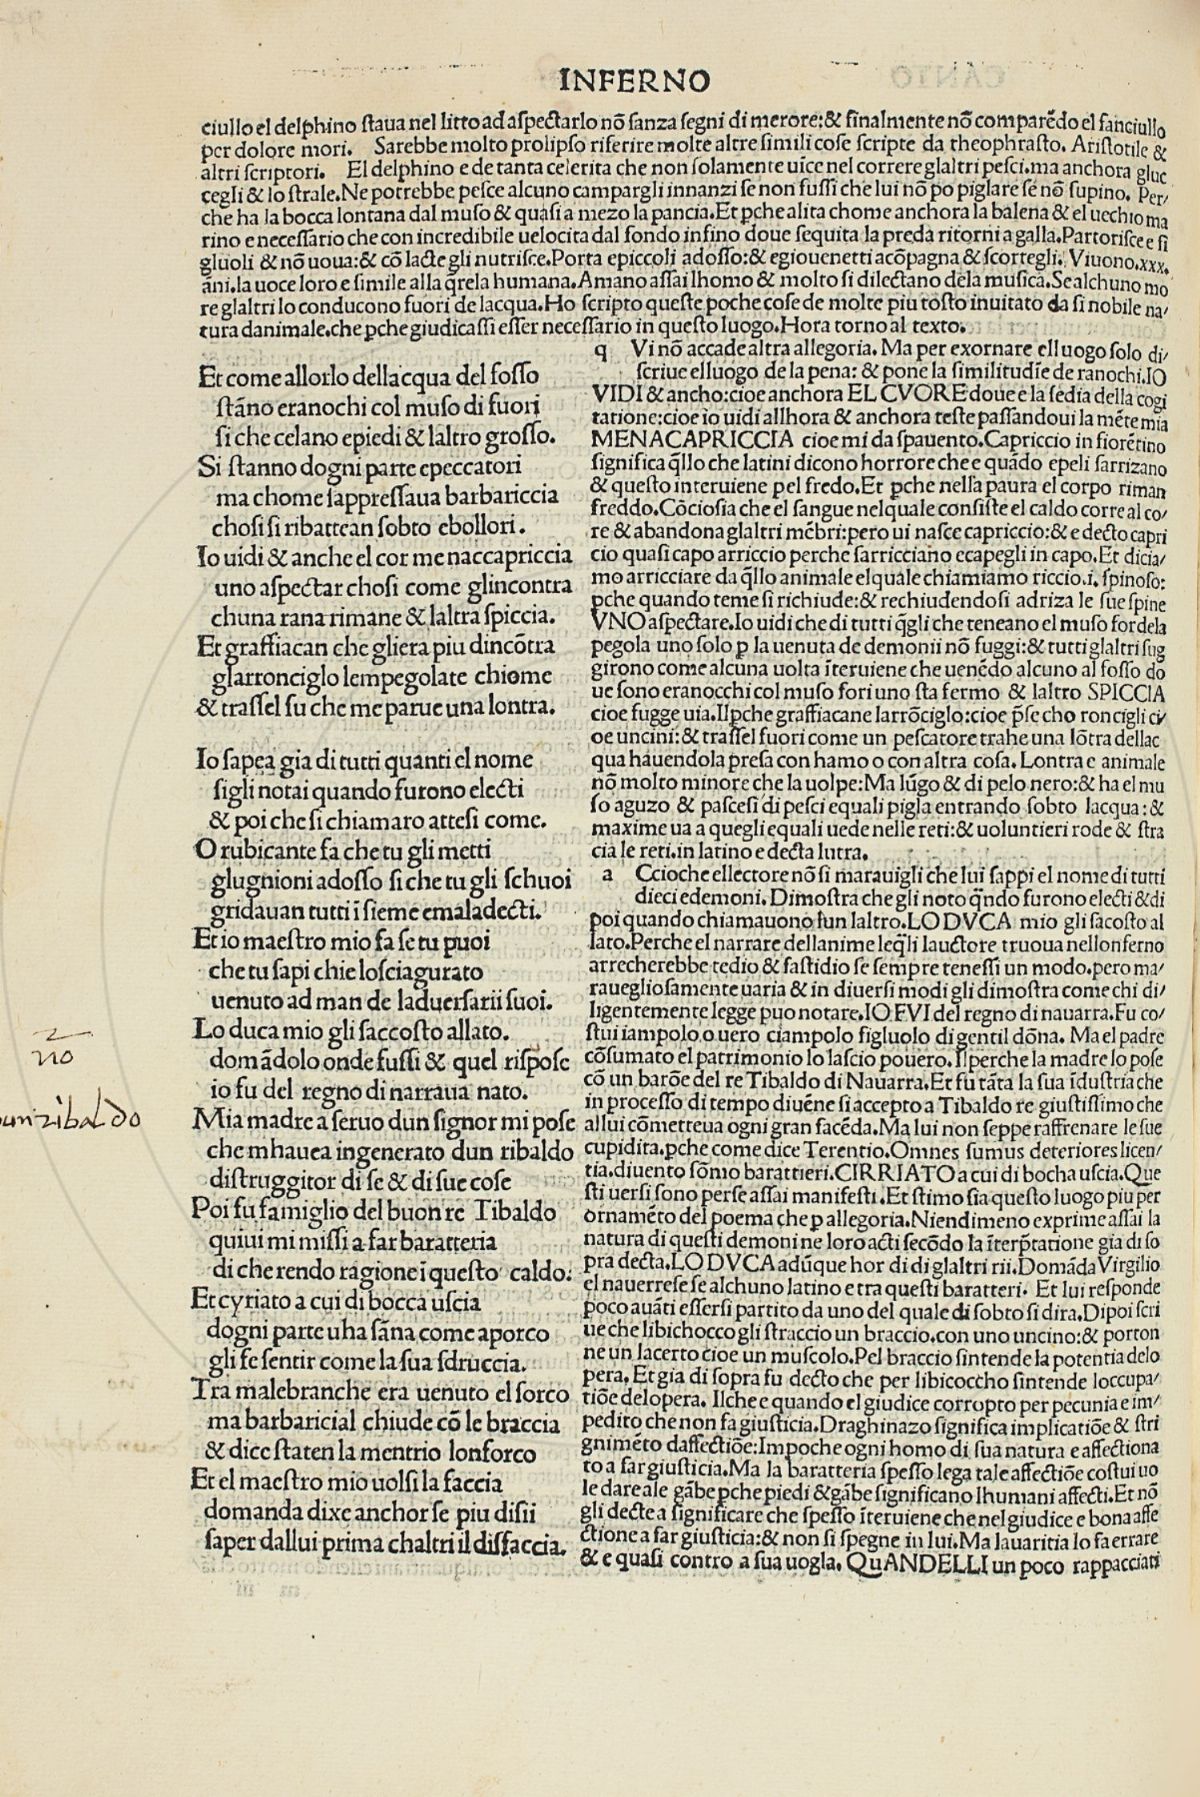 INFERNO
ciullo el delphino ſtaua nel litto ad aſpectarlo nõ ſanza ſegni di merore:& finalmente nõ comparẽdo el fanciullo
per dolore mori. Sarebbe molto prolipſo riferire molte altre ſimili coſe ſcripte da theophraſto. Ariſtotile &
altri ſcriptori. El delphino e de tanta celerita che non ſolamente uĩce nel correre glaltri peſci.ma anchora gluc
cegli & lo ſtrale.Ne potrebbe peſce alcuno campargli innanzi ſe non fuſſi che lui nõ po piglare ſe nõ ſupino. Per/
che ha la bocca lontana dal muſo & quaſi a mezo la pancia.Et pche alita chome anchora la balena & el uechio ma
rino e neceſſario che con incredibile uelocita dal fondo inſino doue ſequita la preda ritorni a galla.Partoriſce e fi
gluoli & nõ uoua:& cõ lacte gli nutriſce.Porta e piccoli adoſſo:& e giouenetti acõpagna & ſcortegli. Viuono.xxx.
ãni.la uoce loro e ſimile alla q̃rela humana.Amano aſſai lhomo & molto ſi dilectano dela muſica.Se alchuno mo
re glaltri lo conducono fuori de lacqua.Ho ſcripto queſte poche coſe de molte piu toſto inuitato da ſi nobile na/
tura danimale.che pche giudicaſſi eſſer neceſſario in queſto luogo.Hora torno al texto.
Et come allorlo dellacqua del foſſo
ſtãno e ranochi col muſo di fuori
ſi che celano e piedi & laltro groſſo.
Si ſtanno dogni parte e peccatori
ma chome ſappreſſaua barbariccia
choſi ſi ribattean ſobto e bollori.
Io uidi & anche el cor me naccapriccia
uno aſpectar choſi come glincontra
chuna rana rimane & laltra ſpiccia.
Et graffiacan che gliera piu dincõtra
glarronciglo lempegolate chiome
& traſſel ſu che me parue una lontra.
Io ſapea gia di tutti quanti el nome
ſi gli notai quando furono electi
& poi che ſi chiamaro atteſi come.
O rubicante fa che tu gli metti
glugnioni adoſſo ſi che tu gli ſchuoi
gridauan tutti ĩ ſieme e maladecti.
Et io maeſtro mio fa ſe tu puoi
che tu ſapi chi e lo ſciagurato
uenuto ad man de laduerſarii ſuoi.
Lo duca mio gli ſaccoſto allato.
domãdolo onde fuſſi & quel riſpoſe
io fu del regno di narraua nato.
Mia madre a ſeruo dun ſignor mi poſe
che mhauea ingenerato dun ribaldo
diſtruggitor di ſe & di ſue coſe
Poi fu famiglio del buon re Tibaldo
quiui mi miſſi a far baratteria
di che rendo ragione ĩ queſto caldo:
Et cyriato a cui di bocca uſcia
dogni parte uha ſãna come a porco
gli fe ſentir come la ſua ſdruccia.
Tra malebranche era uenuto el ſorco
ma barbaricial chiude cõ le braccia
& dice ſtaten la mentrio lonforco
Et el maeſtro mio uolſi la faccia
domanda dixe anchor ſe piu diſii
ſaper dallui prima chaltri il diſfaccia.
q Vi nõ accade altra allegoria. Ma per exornare el luogo ſolo di/
ſcriue el luogo de la pena: & pone la ſimilitudĩe de ranochi.IO
VIDI & ancho:cioe anchora EL CVORE doue e la ſedia della cogi
tatione:cioe io uidi allhora & anchora teſte paſſandoui la mẽte mia
MENACAPRICCIA cioe mi da ſpauento.Capriccio in fiorẽtino
ſignifica q̃llo che latini dicono horrore che e quãdo e peli ſarrizano
& queſto interuiene pel fredo.Et pche nella paura el corpo riman
freddo.Cõcioſia che el ſangue nel quale conſiſte el caldo corre al co/
re & abandona glaltri mẽbri:pero ui naſce capriccio:& e decto capri
cio quaſi capo arriccio perche ſarricciano e capegli in capo.Et dicia/
mo arricciare da q̃llo animale el quale chiamiamo riccio.i. ſpinoſo:
pche quando teme ſi richiude:& rechiudendoſi adriza le ſue ſpine
VNO aſpectare.Io uidi che di tutti q̃gli che teneano el muſo for dela
pegola uno ſolo p la uenuta de demonii nõ fuggi:& tutti glaltri fug
girono come alcuna uolta ĩteruiene che uenẽdo alcuno al foſſo do
ue ſono e ranocchi col muſo fori uno ſta fermo & laltro SPICCIA
cioe fugge uia.Il pche graffiacane larrõciglo:cioe p̃ſe cho roncigli ci/
oe uncini:& traſſel fuori come un peſcatore trahe una lõtra dellac
qua hauendola preſa con hamo o con altra coſa. Lontra e animale
nõ molto minore che la uolpe:Ma lũgo & di pelo nero:& ha el mu
ſo aguzo & paſceſi di peſci e quali pigla entrando ſobto lacqua:&
maxime ua a quegli e quali uede nelle reti:& uoluntieri rode & ſtra
cia le reti.in latino e decta lutra.
a Ccioche el lectore nõ ſi marauigli che lui ſappi el nome di tutti
dieci e demoni. Dimoſtra che gli noto q̃ndo furono electi & di
poi quando chiamauono lun laltro.LO DVCA mio gli ſacoſto al
lato.Perche el narrare dellanime leq̃li lauctore truoua nellonferno
arrecherebbe tedio & faſtidio ſe ſempre teneſſi un modo.pero ma/
rauegliosamente uaria & in diuerſi modi gli dimoſtra come chi di/
ligentemente legge puo notare.IO FVI del regno di nauarra.Fu co/
ſtui iampolo o uero ciampolo figluolo di gentil dõna. Ma el padre
cõſumato el patrimonio lo laſcio pouero. Il perche la madre lo poſe
cõ un barõe del re Tibaldo di Nauarra.Et fu tãta la ſua ĩduſtria che
in proceſſo di tempo diuẽne ſi accepto a Tibaldo re giuſtiſſimo che
allui cõmetteua ogni gran facẽda.Ma lui non ſeppe raffrenare le ſue
cupidita.pche come dice Terentio.Omnes ſumus deteriores licen/
tia.diuento ſõmo barattieri.CIRRIATO a cui di bocha uſcia.Que
ſti uerſi ſono per ſe aſſai manifeſti.Et ſtimo ſia queſto luogo piu per
ornamẽto del poema che p allegoria.Niendimeno exprime aſſai la
natura di queſti demoni ne loro acti ſecõdo la ĩterp̃tatione gia di ſo
pra decta.LO DVCA adũque hor di di glaltri rii.Domãda Virgilio
el nauerreſe ſe alchuno latino e tra queſti baratteri. Et lui reſponde
poco auãti eſſerſi partito da uno del quale di ſobto ſi dira.Dipoi ſcri
ue che libichocco gli ſtraccio un braccio.con uno uncino:& porton
ne un lacerto cioe un muſcolo.Pel braccio ſintende la potentia delo
pera. Et gia di ſopra fu decto che per libicoccho ſintende loccupa/
tiõe del opera. Il che e quando el giudice corropto per pecunia e im/
pedito che non fa giuſticia.Draghinazo ſignifica implicatiõe & ſtri
gnimẽto daffectiõe:Impoche ogni homo di ſua natura e affectiona
to a far giuſticia.Ma la baratteria ſpeſſo lega tale affectiõe coſtui uo
le dare ale gãbe pche piedi & gãbe ſignificano lhumani affecti.Et nõ
gli decte a ſignificare che ſpeſſo ĩteruiene che nel giudice e bona affe
ctione a far giuſticia:& non ſi ſpegne in lui.Ma lauaritia lo fa errare
& e quaſi contro a ſua uogla. QuANDELLI un poco rappacciati
nõ